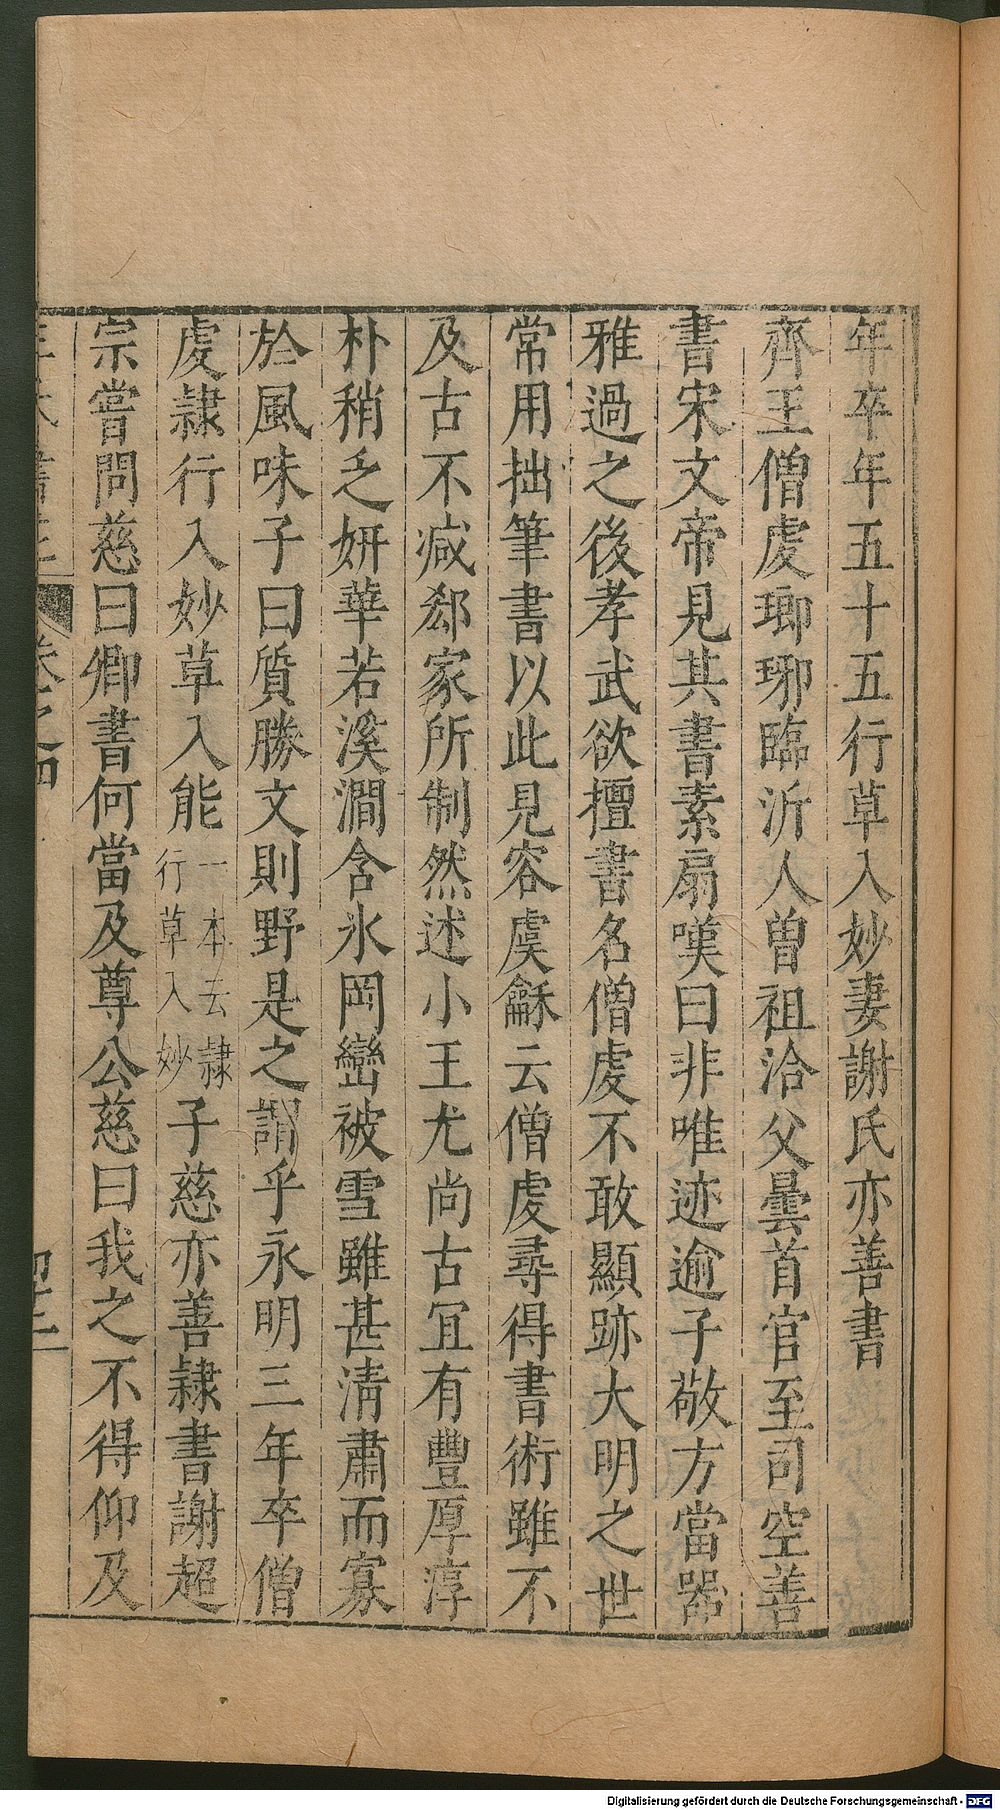 年卒年五十五行草入妙妻謝氏亦善書
齊王僧虔瑯琊臨沂人曽祖洽父曇首官至司空善
書宋文帝見其書素扇嘆曰非唯迹逾子敬方當器
雅過之後孝武欲擅書名僧虔不敢顯跡大明之世
常用拙筆書以此見容虞龢云僧虔尋得書術雖不
及古不减郄家所制然述小王尤尚古冝有豐厚淳
朴稍乏妍華若溪澗含氷岡巒被雪雖甚清肅而寡
於風味子曰質勝文則野是之謂乎永明三年卒僧
虔隷行入妙草入能
一本云隷
行草入妙
子慈亦善隷書謝超
宗嘗問慈曰卿書何當及尊公慈曰我之不得仰及
卷之四
Digitalisierung gefördert durch die Deutsche Forschungsgemeinschaft - DFG